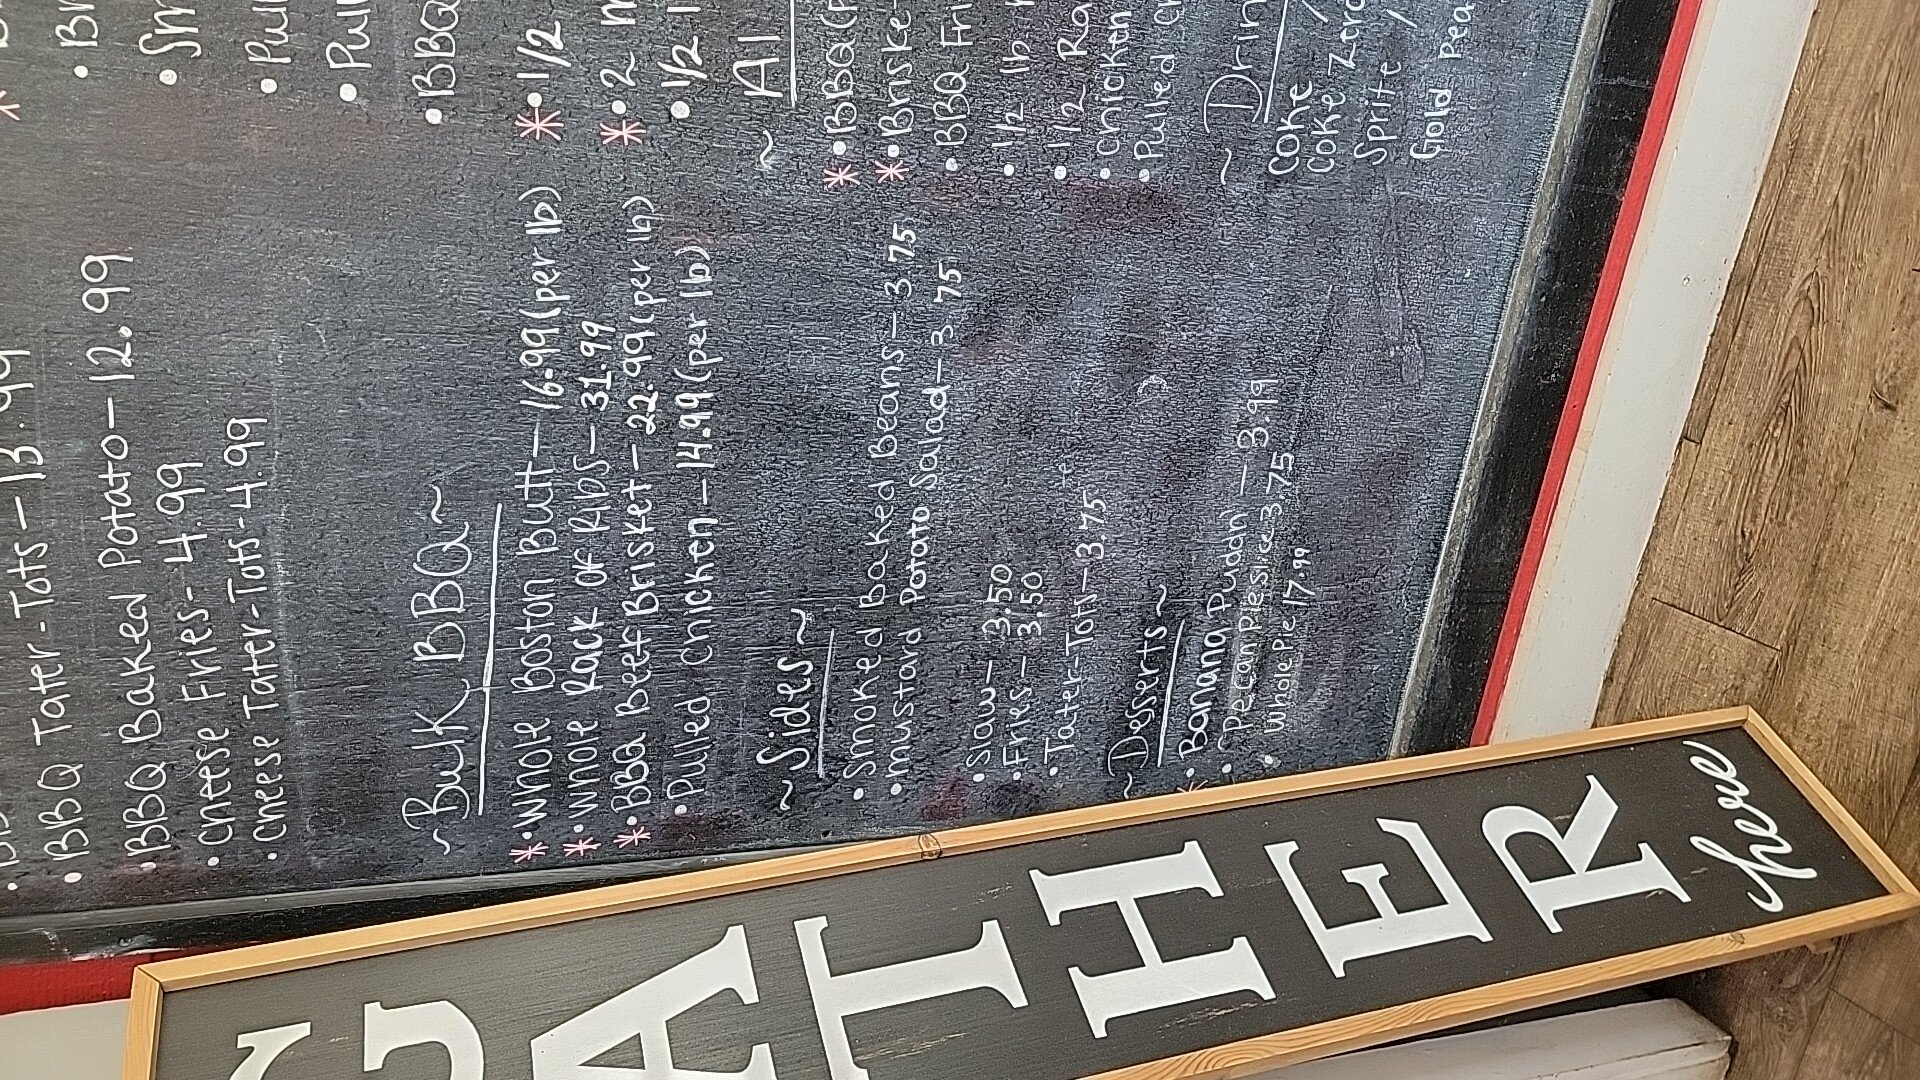 BBQ Tater-Tots-13.99
BBQ Baked Potato-12.99
Cheese Fries-4.99
Cheese Tater-Tots-4.99
~Bulk BBQ~
*•Whole Boston Butt-16.99(per lb)
*•Whole Rack of Ribs-31.99
*•BBQ Beef Brisket-22.99(per lb)
•Pulled Chicken-14.99(per lb)
~Sides~
•Smoked Baked Beans-3.75
•Mustard Potato Salad-3.75
•Slaw-3.50
•Fries-3.50
•Tater-Tots-3.75
~Desserts~
*•Banana Puddn'-3.99
•Pecan Pie Slice 3.75
Whole Pie 17.99
•BBQ
*•1/2
*•2
•1/2
*•BBQ
*•
•BBQ
•1/2 lb
•1/2
•Chicken
•Pulled
Coke
Coke Zero
Sprite /
Gold Pea
GATHER
here